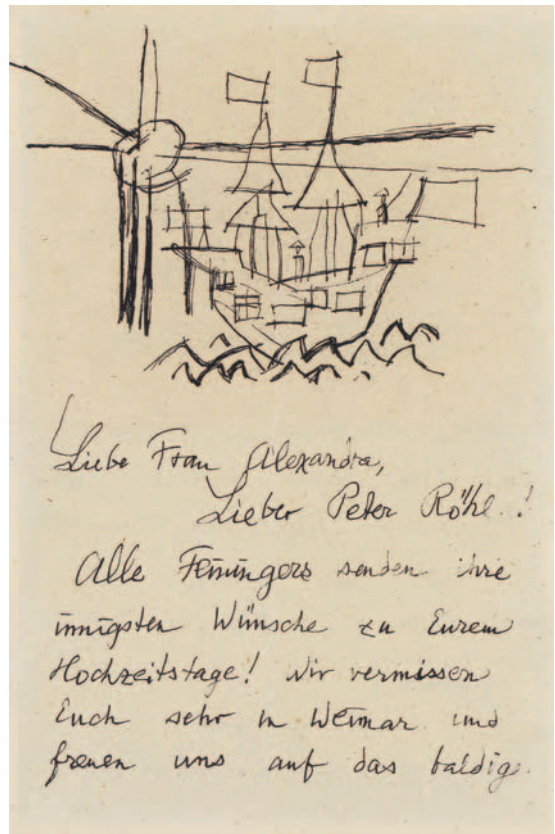 Liebe Frau Alexandra,
Lieber Peter Röhl!
Alle Feiningers senden ihre
innigsten Wünsche zu Eurem
Hochzeitstage! Wir vermissen
Euch sehr in Weimar und
freuen uns auf das baldige